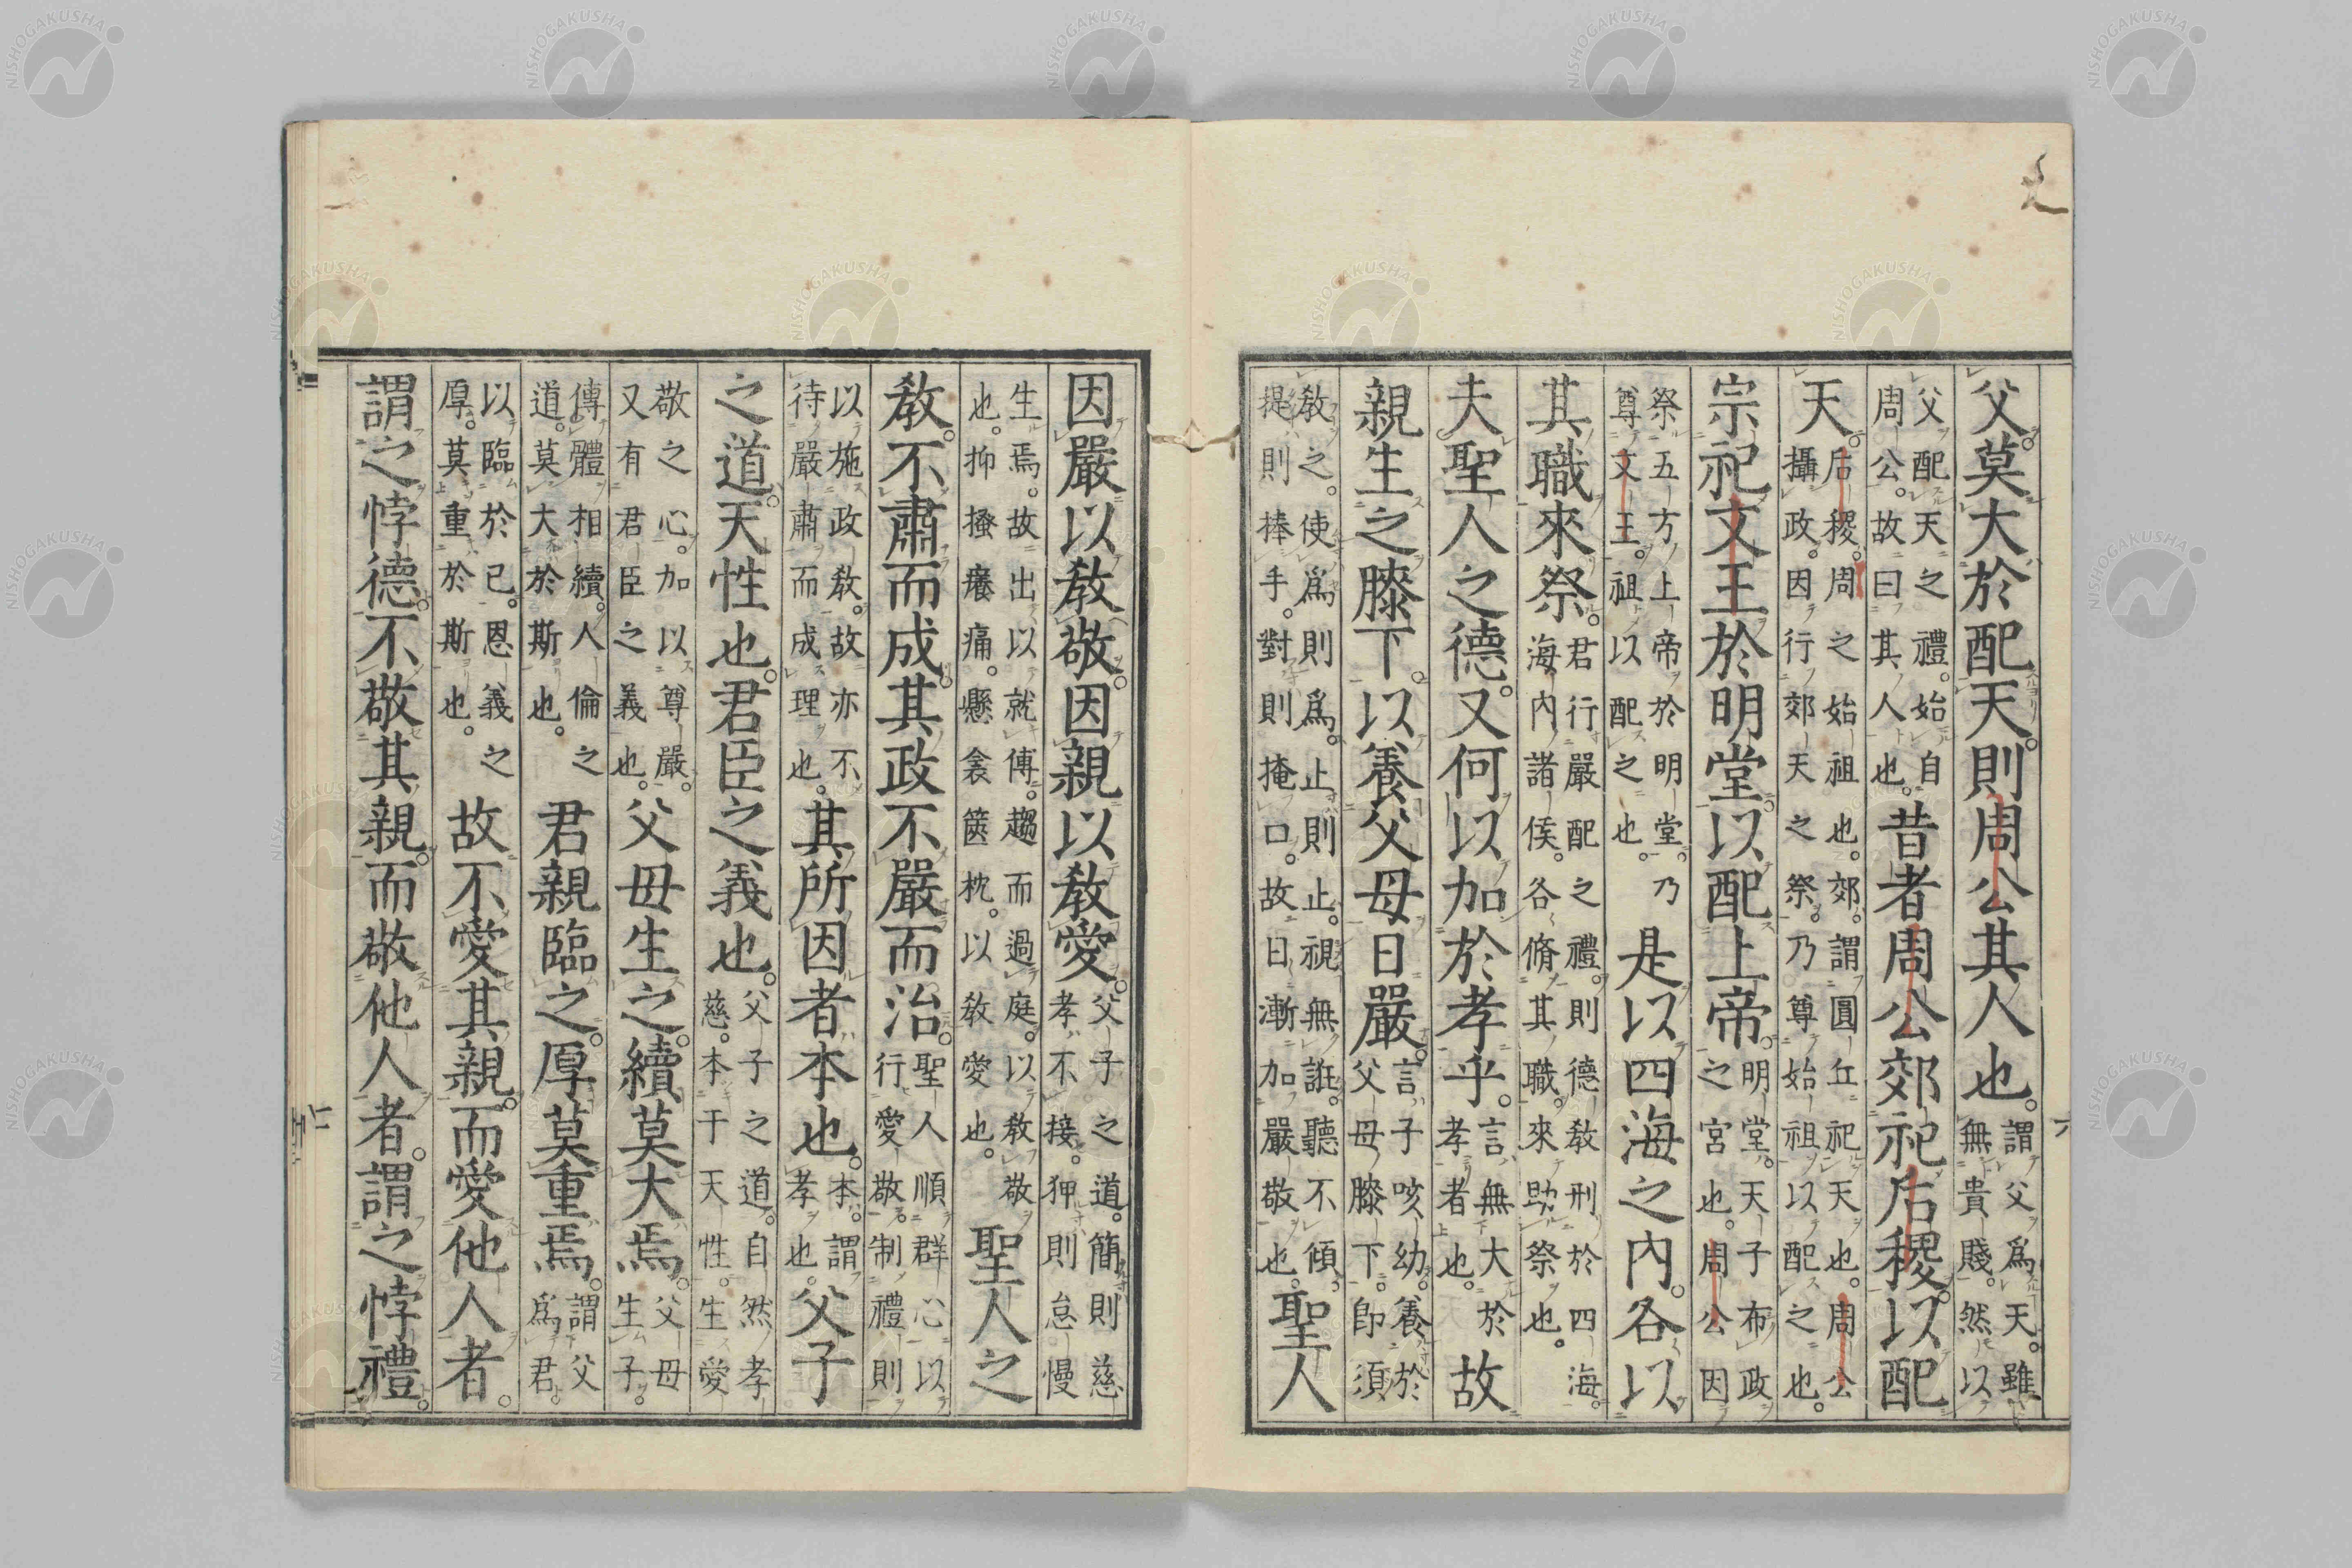 父。莫大於配天。則周公其人也。謂父爲天。雖無貴賤。然以
父配天之禮。始自周公。故曰其人也。昔者周公郊祀后稷。以配
天。后稷。周之始祖也。郊。謂圓丘祀天也。周公攝政。因行郊天之祭。乃尊始祖以配之也。
宗祀文王於明堂。以配上帝。明堂。天子布政之宮也。周公因
祭五方上帝於明堂。乃尊文王。祖以配之也。是以四海之內。各以
其職來祭。君行嚴配之禮。則德敎刑於四海。海內諸侯。各脩其職。來助祭也。
夫聖人之德。又何以加於孝乎。言無大於孝者也。故
親生之膝下。以養父母日嚴。言子咳幼。養於父母膝下。卽須
敎之。使爲則爲。止則止。視無誑。聽不傾。提則捧手。對則掩口。故日漸加嚴敬也。聖人
因嚴以敎敬。因親以敎愛。父子之道。簡則慈孝不接。狎則怠慢
生焉。故出以就傅。趨而過庭。以敎敬也。抑搔癢痛。懸衾篋枕。以敎愛也。聖人之
敎。不肅而成。其政不嚴而治。聖人順群心以行愛敬。制禮則
以施政敎。故亦不待嚴肅而成理也。其所因者本也。本。謂孝也。父子
之道。天性也。君臣之義也。父子之道。自然孝慈。本于天性。生愛
敬之心。加以尊嚴。又有君臣之義也。父母生之。續莫大焉。父母生子。
傳體相續。人倫之道。莫大於斯也。君親臨之。厚莫重焉。謂父爲君。
以臨於己。恩義之厚。莫重於斯也。故不愛其親。而愛他人者。
謂之悖德。不敬其親。而敬他人者。謂之悖禮。